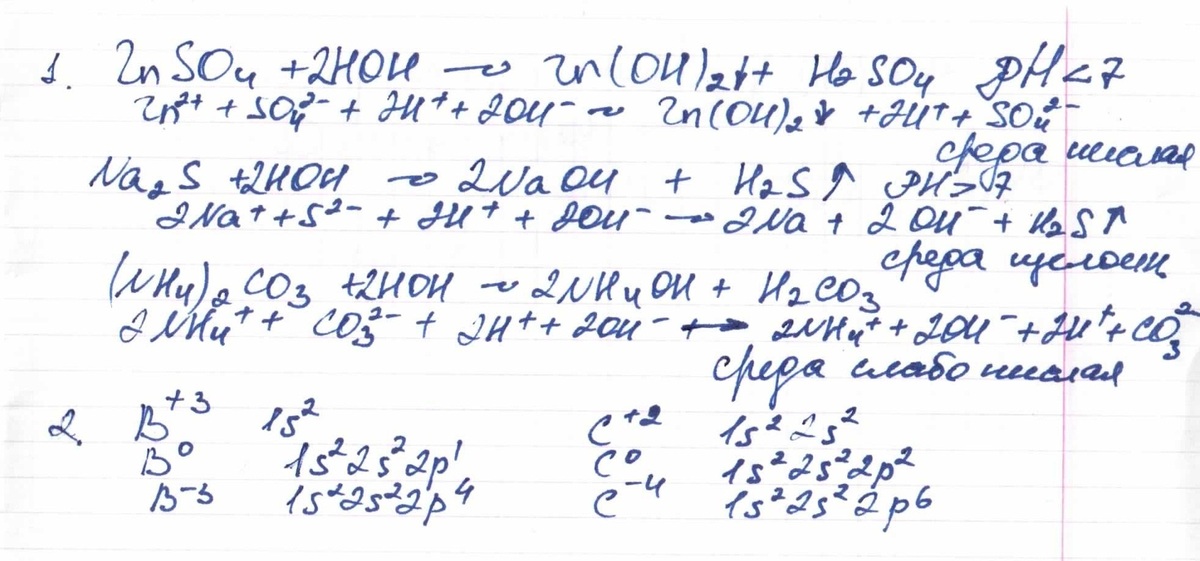 1. ZnSO₄ + 2HOH → Zn(OH)₂↓ + H₂SO₄ pH < 7
Zn²⁺ + SO₄²⁻ + 2H⁺ + 2OH⁻ → Zn(OH)₂↓ + 2H⁺ + SO₄²⁻
среда кислая
Na₂S + 2HOH → 2NaOH + H₂S↑ pH > 7
2Na⁺ + S²⁻ + 2H⁺ + 2OH⁻ → 2Na + 2OH⁻ + H₂S↑
среда щелочн
(NH₄)₂CO₃ + 2HOH → 2NH₄OH + H₂CO₃
2NH₄⁺ + CO₃²⁻ + 2H⁺ + 2OH⁻ → 2NH₄⁺ + 2OH⁻ + 2H⁺ + CO₃²⁻
среда слабо кислая
2. B⁺³ 1s² C⁺² 1s²2s²
B⁰ 1s²2s²2p¹ C⁰ 1s²2s²2p²
B⁻³ 1s²2s²2p⁴ C⁻⁴ 1s²2s²2p⁶